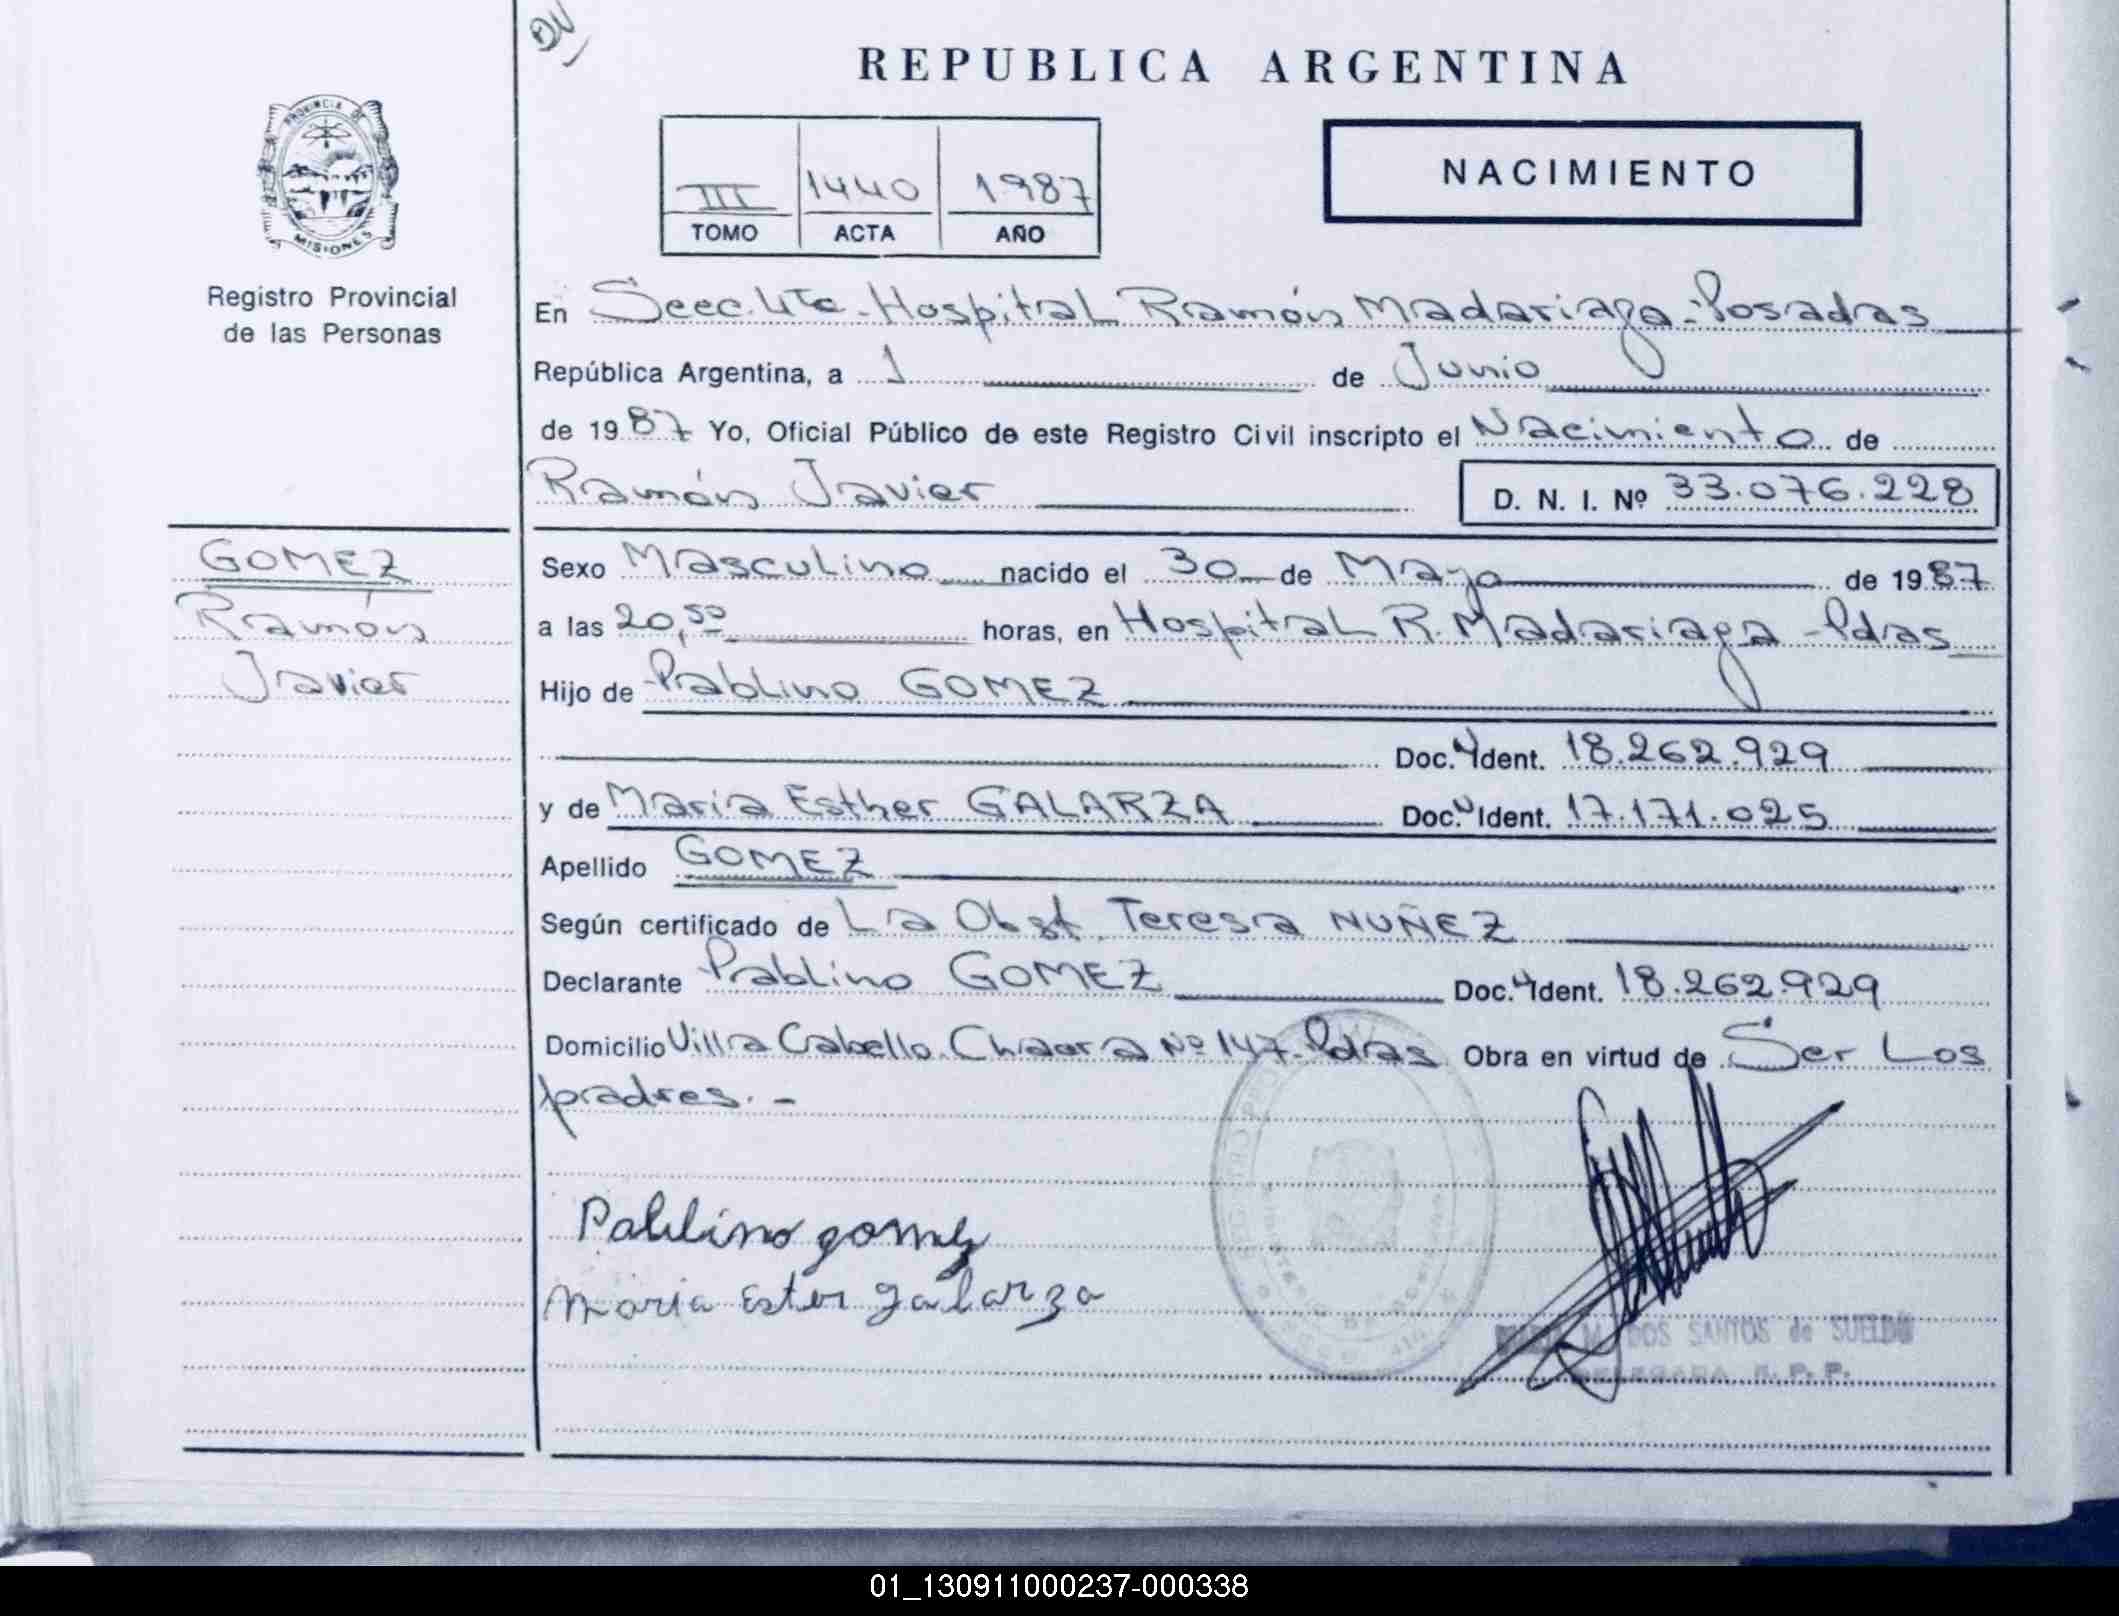 REPUBLICA ARGENTINA
PROVINCIA DE
MISIONES
Registro Provincial
de las Personas
III 1440 1987
TOMO ACTA AÑO
NACIMIENTO
En Secc. 4ta - Hospital Ramón Madariaga - Posadas
República Argentina, a 1 de Junio
de 1987 Yo, Oficial Público de este Registro Civil inscripto el Nacimiento de
Ramón Javier D. N. I. Nº 33.076.228
GOMEZ
Ramón
Javier
Sexo Masculino nacido el 30 de Mayo de 1987
a las 20,50 horas, en Hospital R. Madariaga - Pdas
Hijo de Pablino GOMEZ
Doc. Ident. 18.262.929
y de María Esther GALARZA Doc. Ident. 17.171.025
Apellido GOMEZ
Según certificado de La Obst. Teresa NUÑEZ
Declarante Pablino GOMEZ Doc. Ident. 18.262.929
Domicilio Villa Cabello. Chacra Nº 147 - Pdas Obra en virtud de Ser Los
padres. -
Pablino gomez
maria Ester galarza
M. DOS SANTOS de SUELDO
DELEGADA R. P. P.
01_130911000237-000338